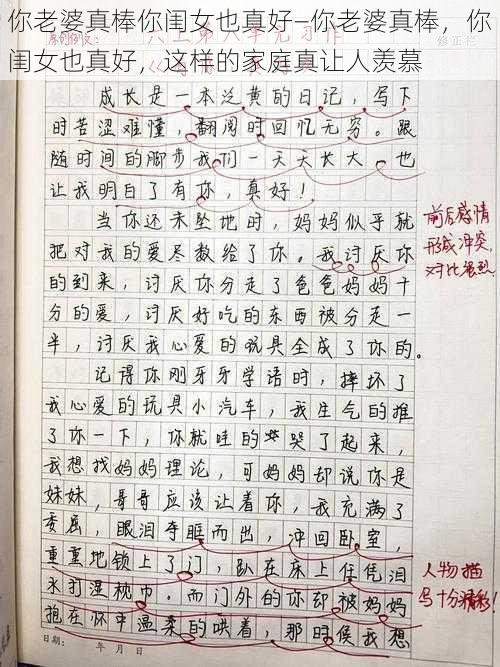 你老婆真棒你闺女也真好—你老婆真棒，你
闺女也真好，这样的家庭真让人羡慕
修正栏
成长是一本泛黄的日记，写下
时苦涩难懂，翻阅时回忆无穷。跟
随时间的脚步我们一天天长大，也
让我明白了有你，真好！
当你还未坠地时，妈妈似乎就
把对我的爱尽数给了你。我讨厌你
的到来，讨厌你分走了爸爸妈妈十
分的爱，讨厌好吃的东西被分走一
半，讨厌我心爱的玩具全成了你的。
前后感情
形成冲突，
对比强烈
记得你刚牙牙学语时，摔坏了
我心爱的玩具小汽车，我生气的推
了你一下，你就哇的哭了起来，
我想找妈妈理论，可妈妈却说你是
妹妹，哥哥应该让着你，我充满了
委屈，眼泪夺眶而出，冲回卧室，
重重地锁上了门，趴在床上任凭泪
水打湿枕巾。而门外的你却被妈妈
抱在怀中温柔的哄着，那时候我想
人物描
写十分精彩！
日期： 年 月 日